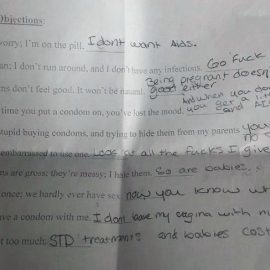 Objections:
worry; I'm on the pill. I dont want AIDS.
an; I don't run around, and I don't have any infections. Go fuck
Being pregnant doesn
ns don't feel good. It won't be natural. good either
And when you don
time you put a condom on, you've lost the mood. you get a
and AI
stupid buying condoms, and trying to hide them from my parents you
no
embarrassed to use one. Look at all the fucks I give
ns are gross; they're messy; I hate them. So are babies.
once; we hardly ever have sex. now you know wh
ve a condom with me. I dont leave my vagina with m
t too much. STD treatments and babies cost